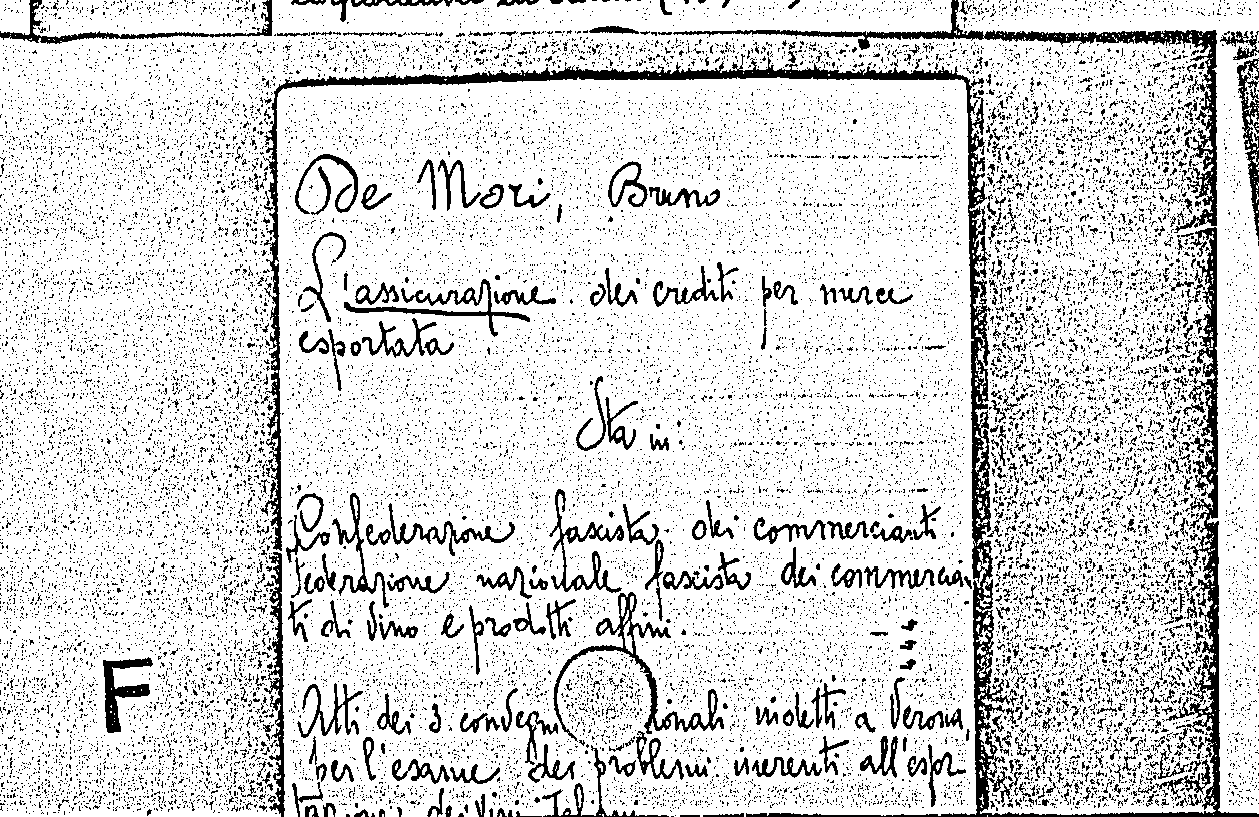 De Mori, Bruno
L'assicurazione dei crediti per merce
esportata
Sta in:
Confederazione fascista dei commercianti.
Federazione nazionale fascista dei commercian
ti di vino e prodotti affini.
Atti dei 3 convegni indetti a Verona,
per l'esame dei problemi inerenti all'espor-
F